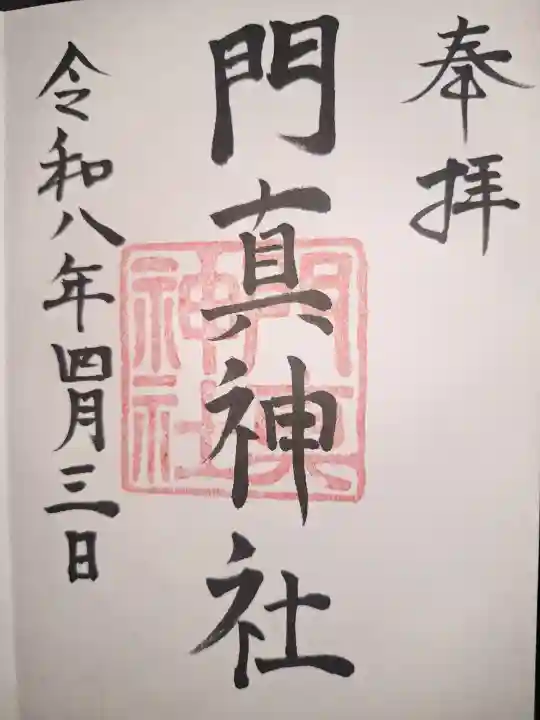 奉拝
門真神社
門真神社
令和八年四月三日